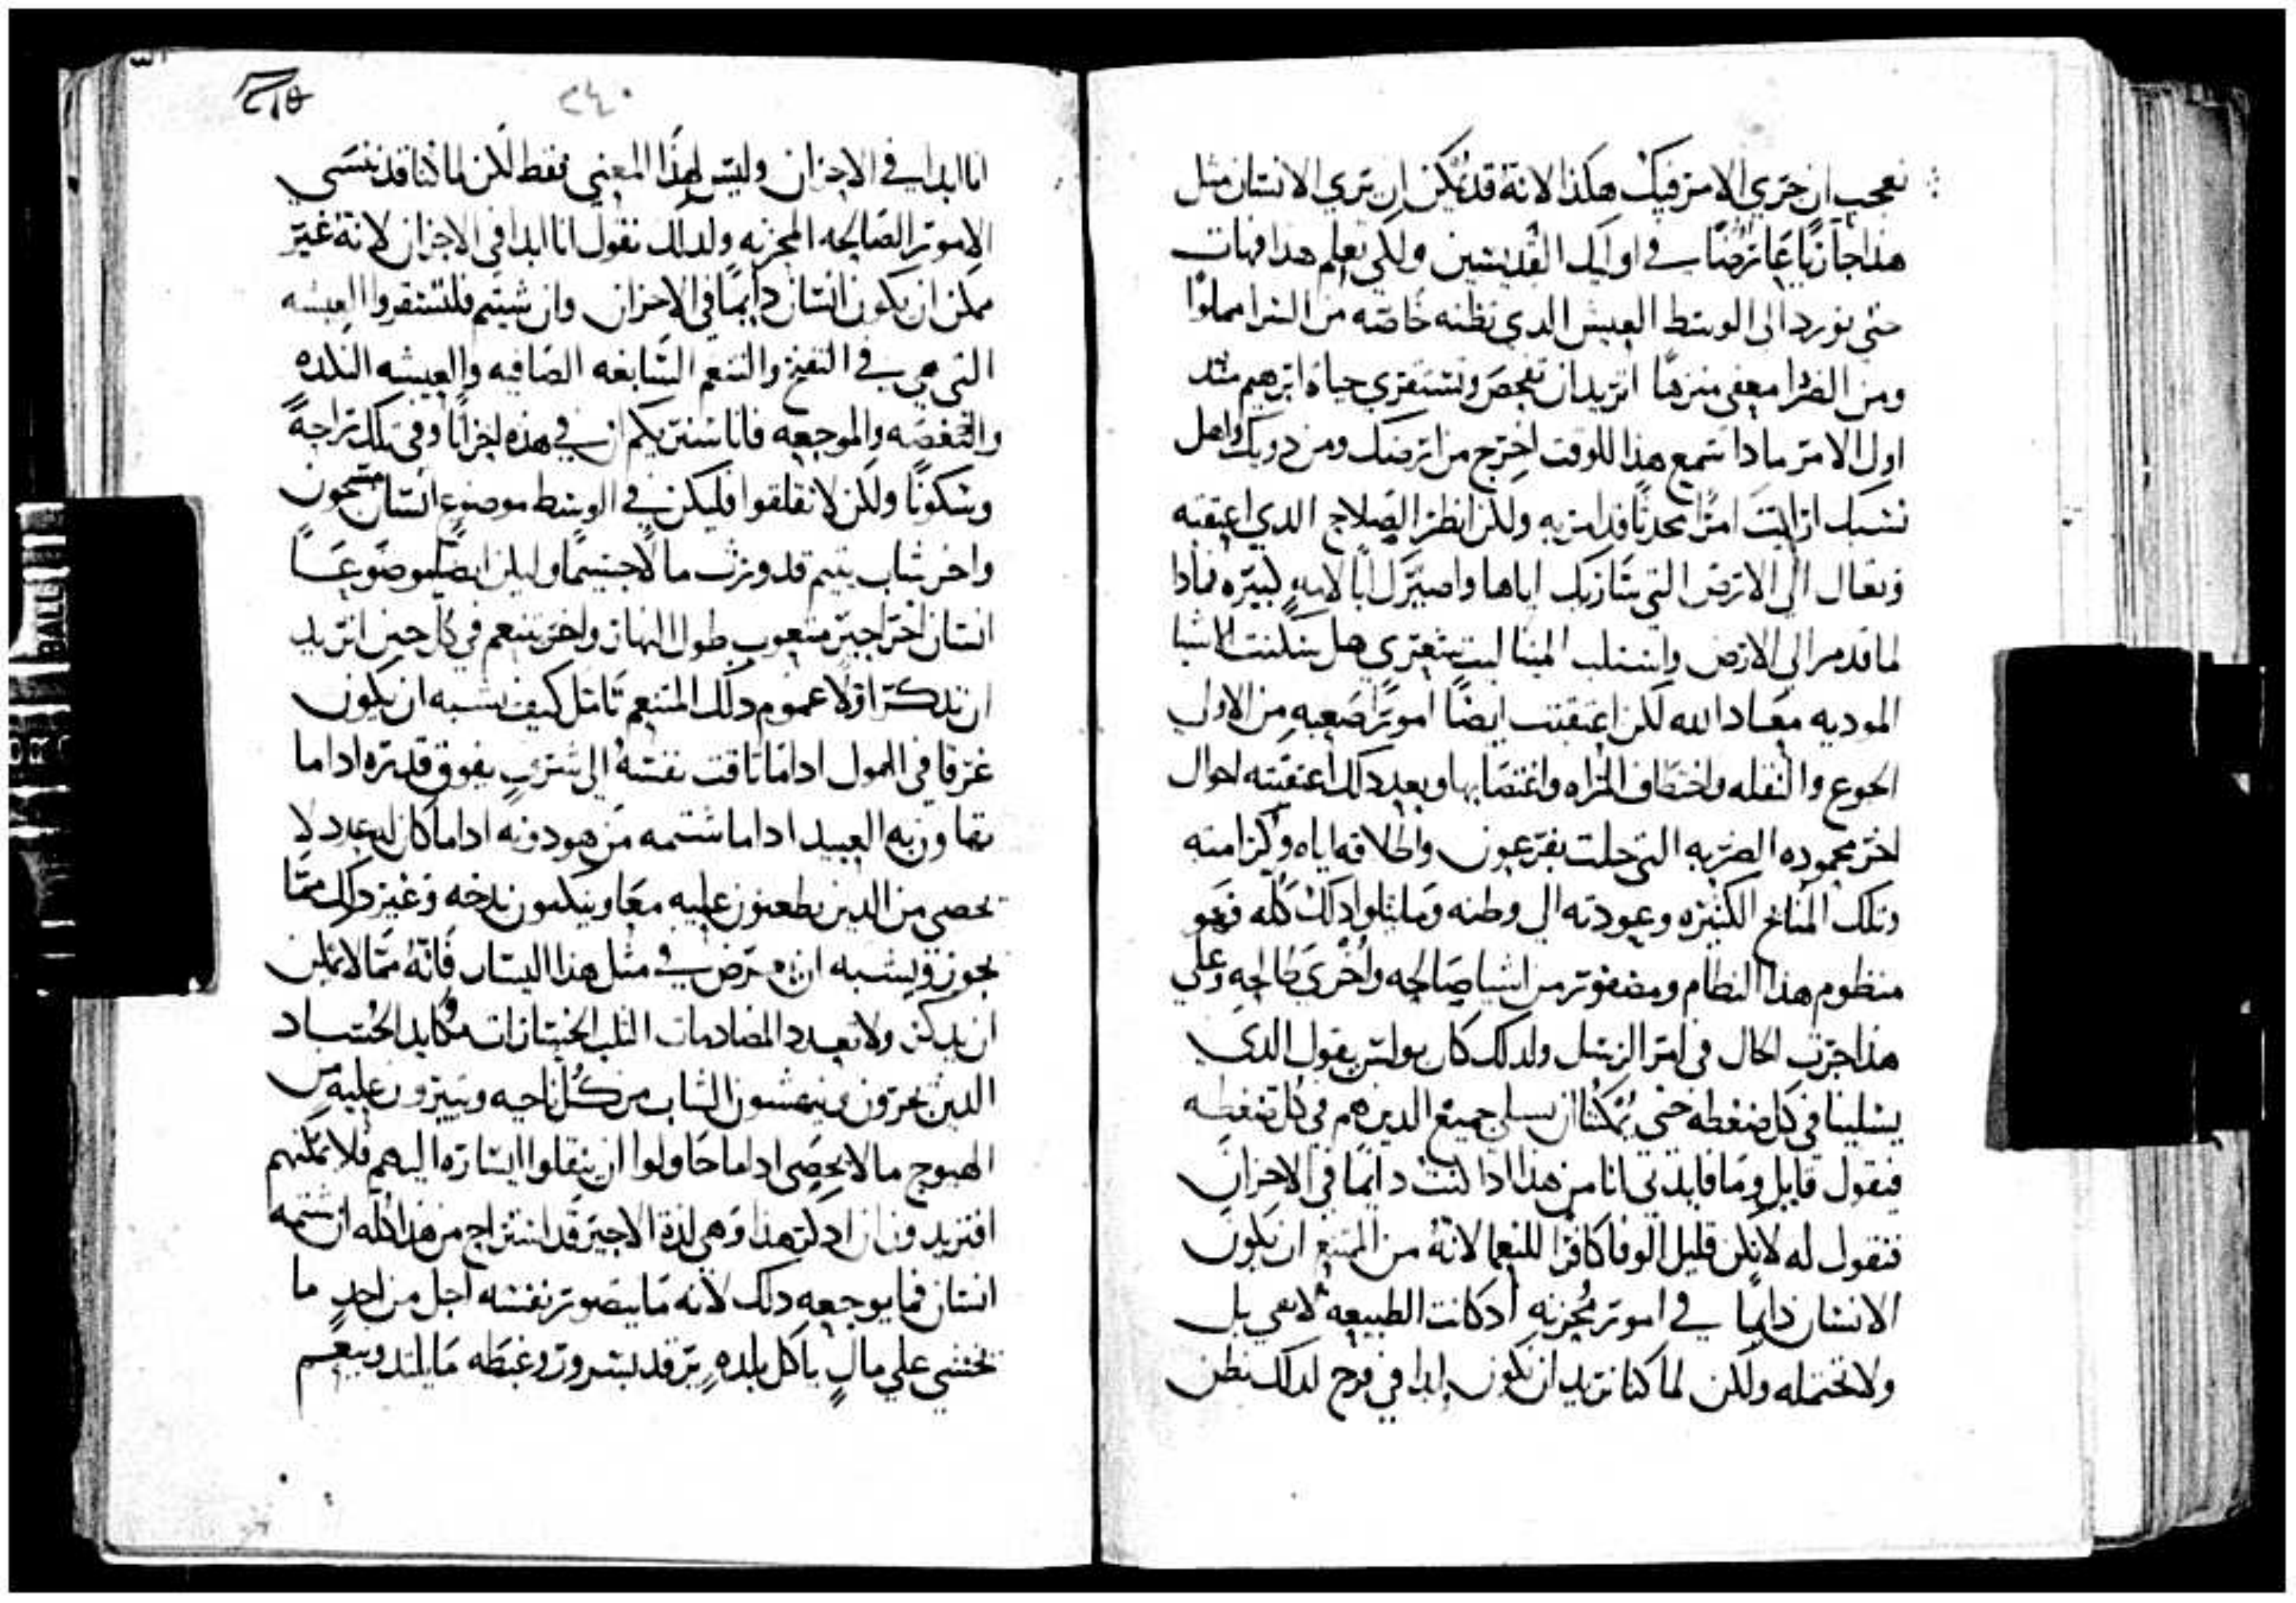 نعجب ان جري الامر فيك هكذا لانه قد يمكن ان يري الانسان مثل
هذا جاريًا عارضًا في اوليك القديسين ولكي تعلم هذا فهات
حتي نورد الي الوسط العيش الدي نظنه خاصه من السرا مملوًا
ومن الضرا معفي منزهًا اتريد ان نفحص ونستقري حياة ابرهيم مند
اول الامر مادا سمع هذا للوقت اخرج من ارضك ومن دويك واهل
نسبك ارايت امرًا محدثًا قد امر به ولكن انظر الصلاح الدي اعقبه
وتعال الي الارض التي ساريك اياها واصيرك ابًا لامه كبيره فمادا
لما قدم الي الارض واستلب المينا ليت شعري هل سكنت الاشيا
الموديه معاد الله لكن اعتقبت ايضًا امورًا صعبه من الاول
الجوع والنقله واختطاف المراه واغتصابها وبعد دلك اعتقبته احوال
اخر محموده الضربه التي حلت بفرعون واطلاقه اياه وكرامته
وتلك المنايح الكثيره وعودته الي وطنه وما يتلوا دلك كله فهو
منظوم هذا النظام ومضفور من اشيا صالحه واخري طالحه وعلي
هذا جرت الحال في امر الرسل ولدلك كان بولس يقول الدي
يسلينا في كل ضغطه حتي يمكننا ان نسلي جميع الدين هم في كل ضغطه
فيقول قايل وما فايدتي انا من هذا ادا كنت دايمًا في الاحزان
فنقول له لا تكن قليل الوفا كافرًا للنعما لانه من الممتنع ان يكون
الانسان دايمًا في امور محزنه اد كانت الطبيعه لا تفي بل
ولا تحتمله ولكن لما كنا نريد ان نكون ابدا في فرح لدلك نظن
٢٤٠
اننا ابدا في الاحزان وليس لهذا المعني فقط لكن لما كنا قد ننسي
الامور الصالحه المحزنه ولدلك نقول اننا ابدا في الاحزان لانه غير
ممكن ان يكون انسان دايمًا في الاحزان وان شيتم فلنستقروا العيشه
التي هي في التفنخ والتنعم السابغه الصافيه والعيشه النكده
والتغصه والموجعه فانا سنريكم ان في هذه احزانًا وفي تلك راحةً
وسكونًا ولكن لا تقلقوا فليكن في الوسط موضوع انسان مسجون
واخر شاب يتيم قد ورث مالًا جسيمًا وليكن ايضًا موضوعًا
انسان اخر اجير متعوب طول النهار واخر يتنعم في كل حين اتريد
ان ندكر اولًا عموم دلك المتنعم تامل كيف يشبه ان يكون
غرقا في الهول ادا ما تاقت نفسه الي شرف يفوق قدره ادا ما
تهاون به العبيد ادا ما شتمه من هو دونه ادا ما كان له عدد لا
يحصي من الدين يطعنون عليه معًا وينكتون بدخه وغير دلك مما
يجوز ويشبه ان يعرض في مثل هذا اليسار فانه مما لا يمكن
ان يدكر ولا تعدد المصادمات الثلب الخسارات مكايد الحساد
الدين يحرقون وينهشون الشاب من كل ناحيه ويثيرون عليه من
الهيوج ما لا يحصي ادا ما حاولوا ان ينقلوا اليساره اليهم فلا يمكنهم
افتريدون ان ادكر هذا وهي لدة الاجير قد استراح من هذا كله ان شتمه
انسان فما يوجعه دلك لانه ما يتصور نفسه اجل من احدٍ ما
يخشي علي مالٍ ياكل بلدهٍ يرقد بسرور وغبطه ما يلتد ويتنعم